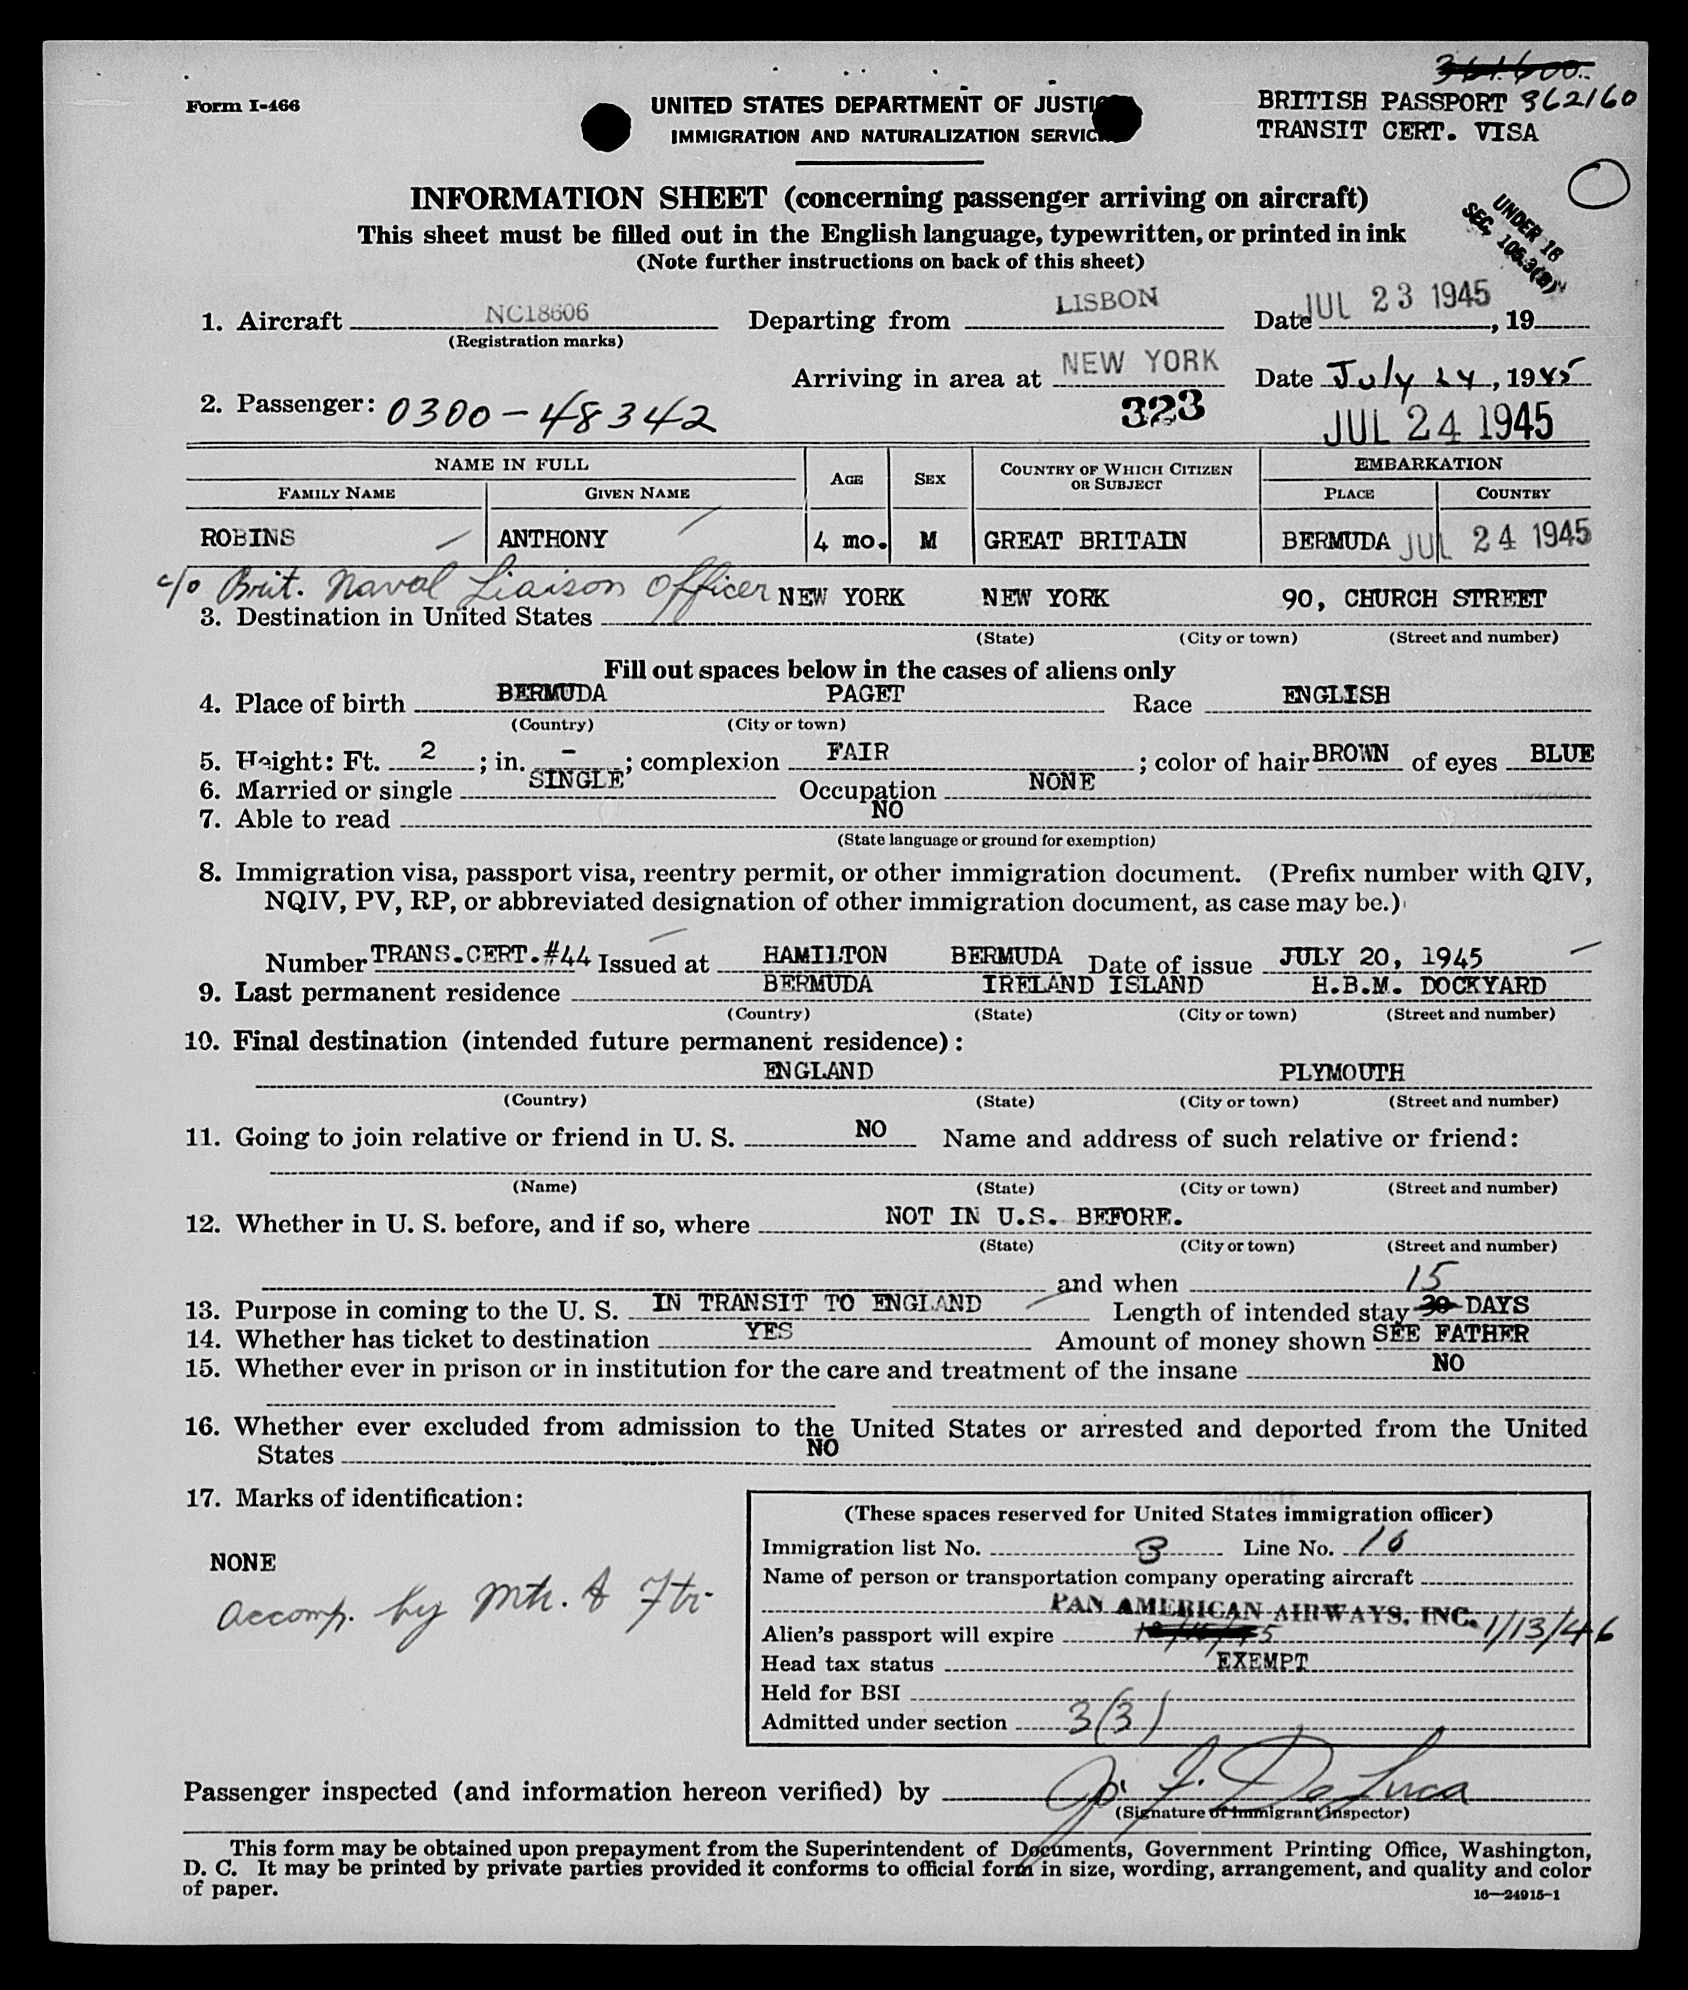 361600
Form I-466
UNITED STATES DEPARTMENT OF JUSTICE
BRITISH PASSPORT 362160
IMMIGRATION AND NATURALIZATION SERVICE
TRANSIT CERT. VISA
INFORMATION SHEET (concerning passenger arriving on aircraft)
UNDER 16
SEC. 105.3(B)
This sheet must be filled out in the English language, typewritten, or printed in ink
(Note further instructions on back of this sheet)
1. Aircraft NC18606 Departing from LISBON Date JUL 23 1945, 19
(Registration marks)
Arriving in area at NEW YORK Date July 24, 1945
2. Passenger: 0300-48342 323 JUL 24 1945
NAME IN FULL AGE SEX COUNTRY OF WHICH CITIZEN OR SUBJECT EMBARKATION
FAMILY NAME GIVEN NAME PLACE COUNTRY
ROBINS ANTHONY 4 mo. M GREAT BRITAIN BERMUDA JUL 24 1945
c/o Brit. Naval Liaison Officer NEW YORK NEW YORK 90, CHURCH STREET
3. Destination in United States
(State) (City or town) (Street and number)
Fill out spaces below in the cases of aliens only
4. Place of birth BERMUDA PAGET Race ENGLISH
(Country) (City or town)
5. Height: Ft. 2 ; in. - ; complexion FAIR ; color of hair BROWN of eyes BLUE
6. Married or single SINGLE Occupation NONE
7. Able to read NO
(State language or ground for exemption)
8. Immigration visa, passport visa, reentry permit, or other immigration document. (Prefix number with QIV,
NQIV, PV, RP, or abbreviated designation of other immigration document, as case may be.)
Number TRANS.CERT.#44 Issued at HAMILTON BERMUDA Date of issue JULY 20, 1945
9. Last permanent residence BERMUDA IRELAND ISLAND H.B.M. DOCKYARD
(Country) (State) (City or town) (Street and number)
10. Final destination (intended future permanent residence):
ENGLAND PLYMOUTH
(Country) (State) (City or town) (Street and number)
11. Going to join relative or friend in U. S. NO Name and address of such relative or friend:
(Name) (State) (City or town) (Street and number)
12. Whether in U. S. before, and if so, where NOT IN U.S. BEFORE.
(State) (City or town) (Street and number)
and when
13. Purpose in coming to the U. S. IN TRANSIT TO ENGLAND Length of intended stay 30 15 DAYS
14. Whether has ticket to destination YES Amount of money shown SEE FATHER
15. Whether ever in prison or in institution for the care and treatment of the insane NO
16. Whether ever excluded from admission to the United States or arrested and deported from the United
States NO
17. Marks of identification:
NONE
Accomp. by Mth. & Fth.
(These spaces reserved for United States immigration officer)
Immigration list No. 3 Line No. 10
Name of person or transportation company operating aircraft
PAN AMERICAN AIRWAYS, INC.
Alien's passport will expire 1/13/46
Head tax status EXEMPT
Held for BSI
Admitted under section 3(3)
Passenger inspected (and information hereon verified) by J. De Luca
(Signature of Immigrant Inspector)
This form may be obtained upon prepayment from the Superintendent of Documents, Government Printing Office, Washington,
D. C. It may be printed by private parties provided it conforms to official form in size, wording, arrangement, and quality and color
of paper.
16—24915-1